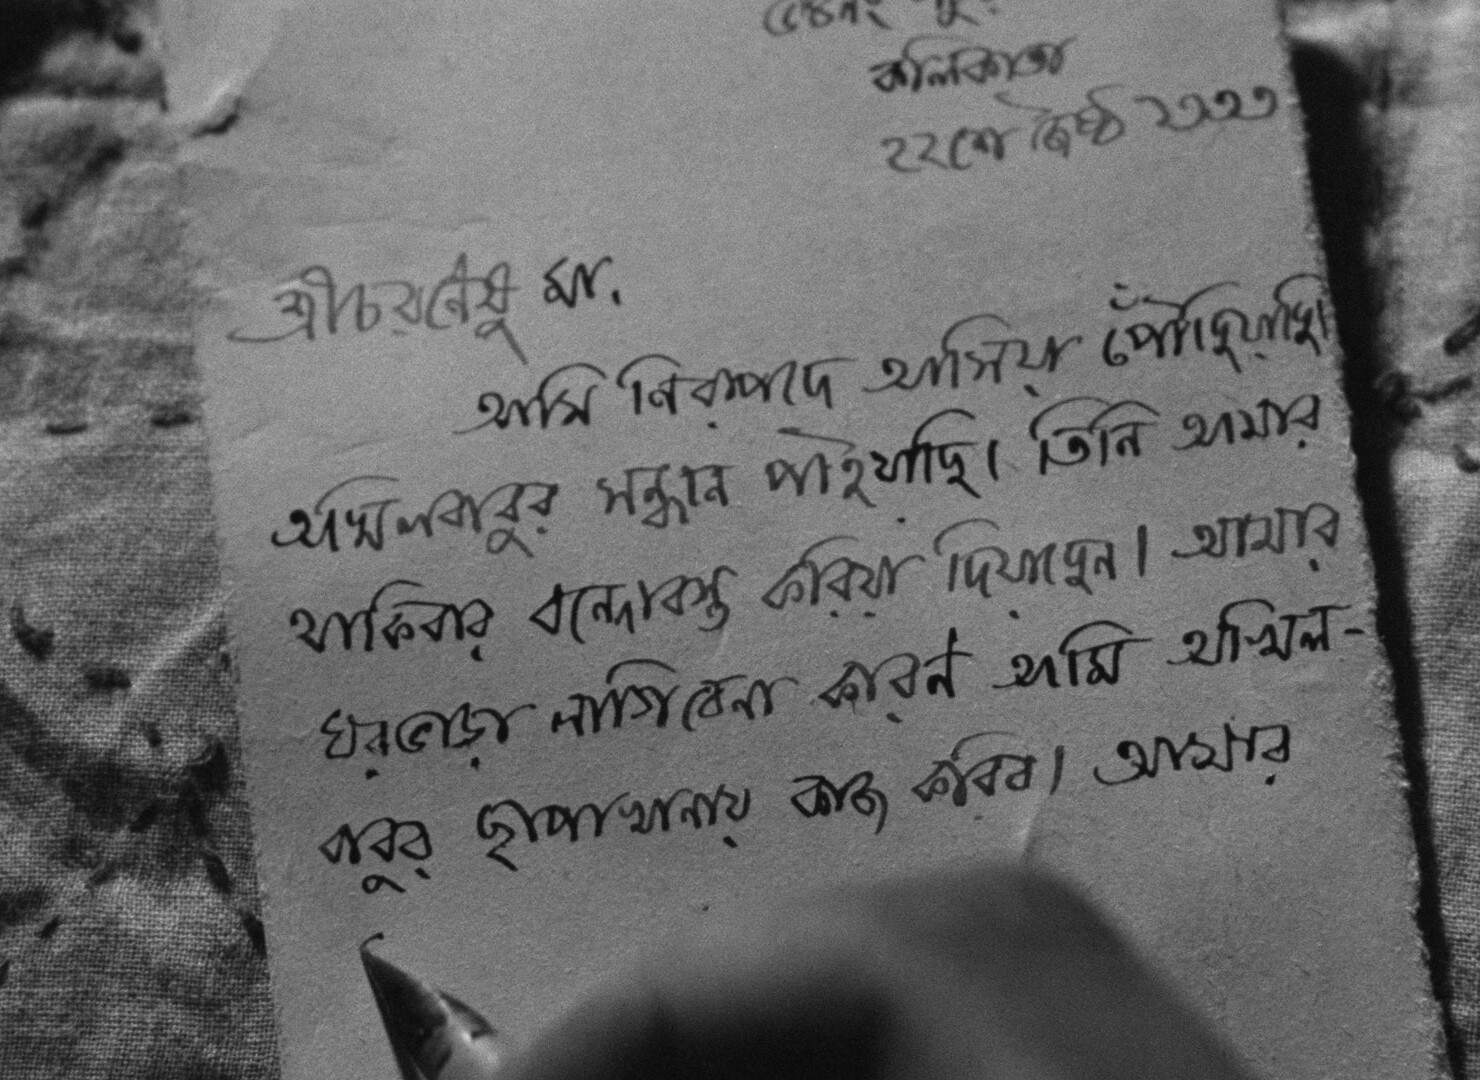 কলিকাতা
২২শে জ্যৈষ্ঠ ১৩৩৩
শ্রীচরণেষু মা.
আমি নিরাপদে আসিয়া পৌঁছিয়াছি।
অখিলবাবুর সন্ধান পাইয়াছি। তিনি আমার
থাকিবার বন্দোবস্ত করিয়া দিয়াছেন। আমার
ঘরভাড়া লাগিবেনা কারণ আমি অখিল-
বাবুর ছাপাখানায় কাজ করিব। আমার